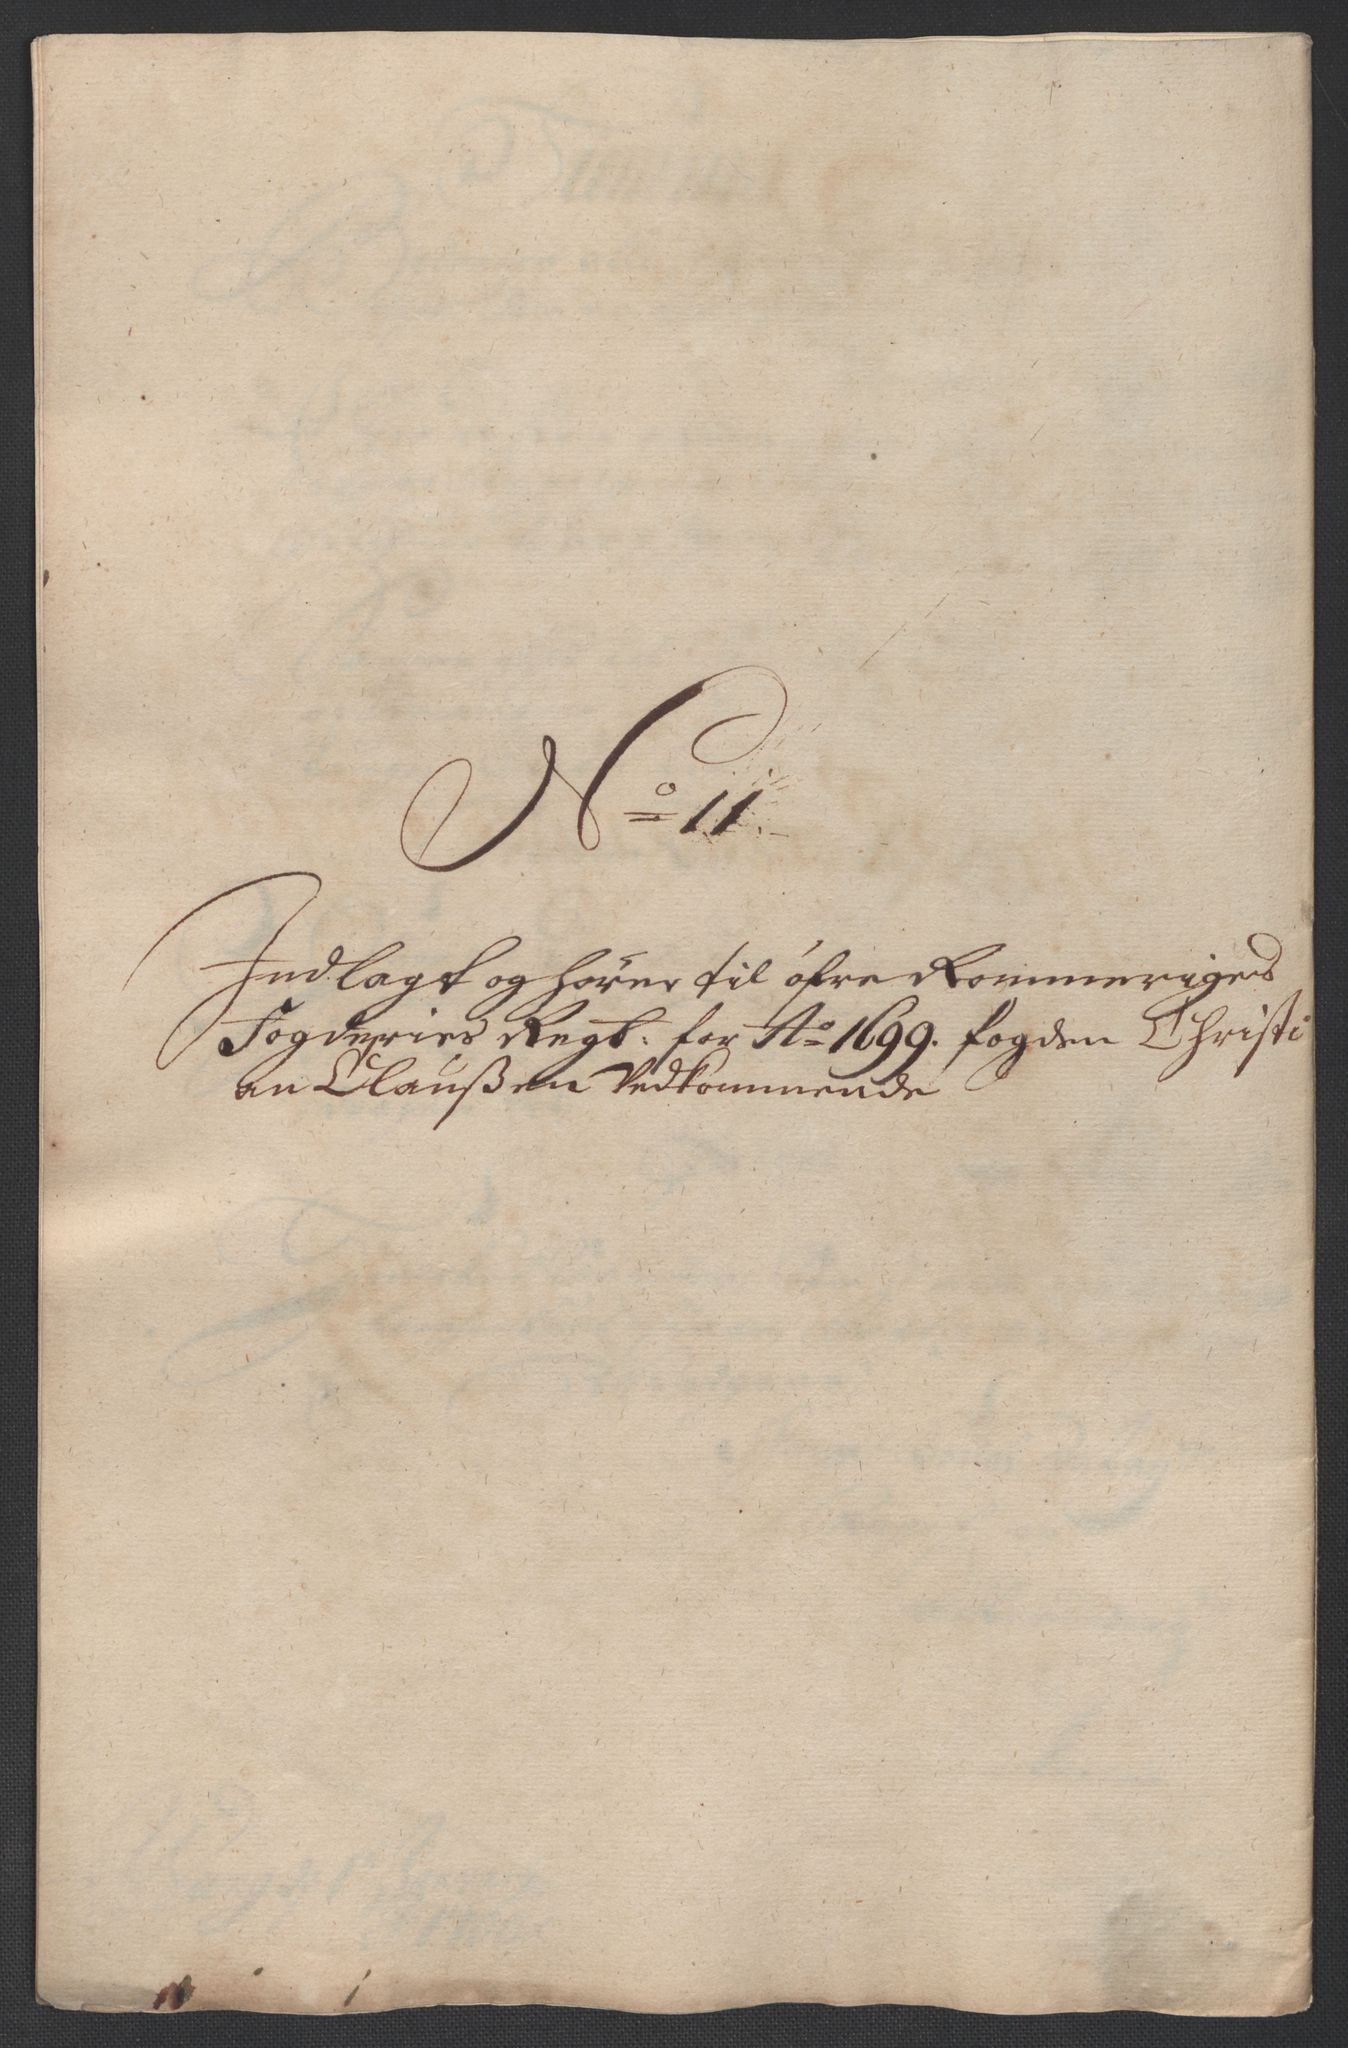 No 11.
Indlagt og hører til øfre Rommeriges
Fogderies Regt: for Ao 1699. fogden Christi
an Claußen Vedkommende